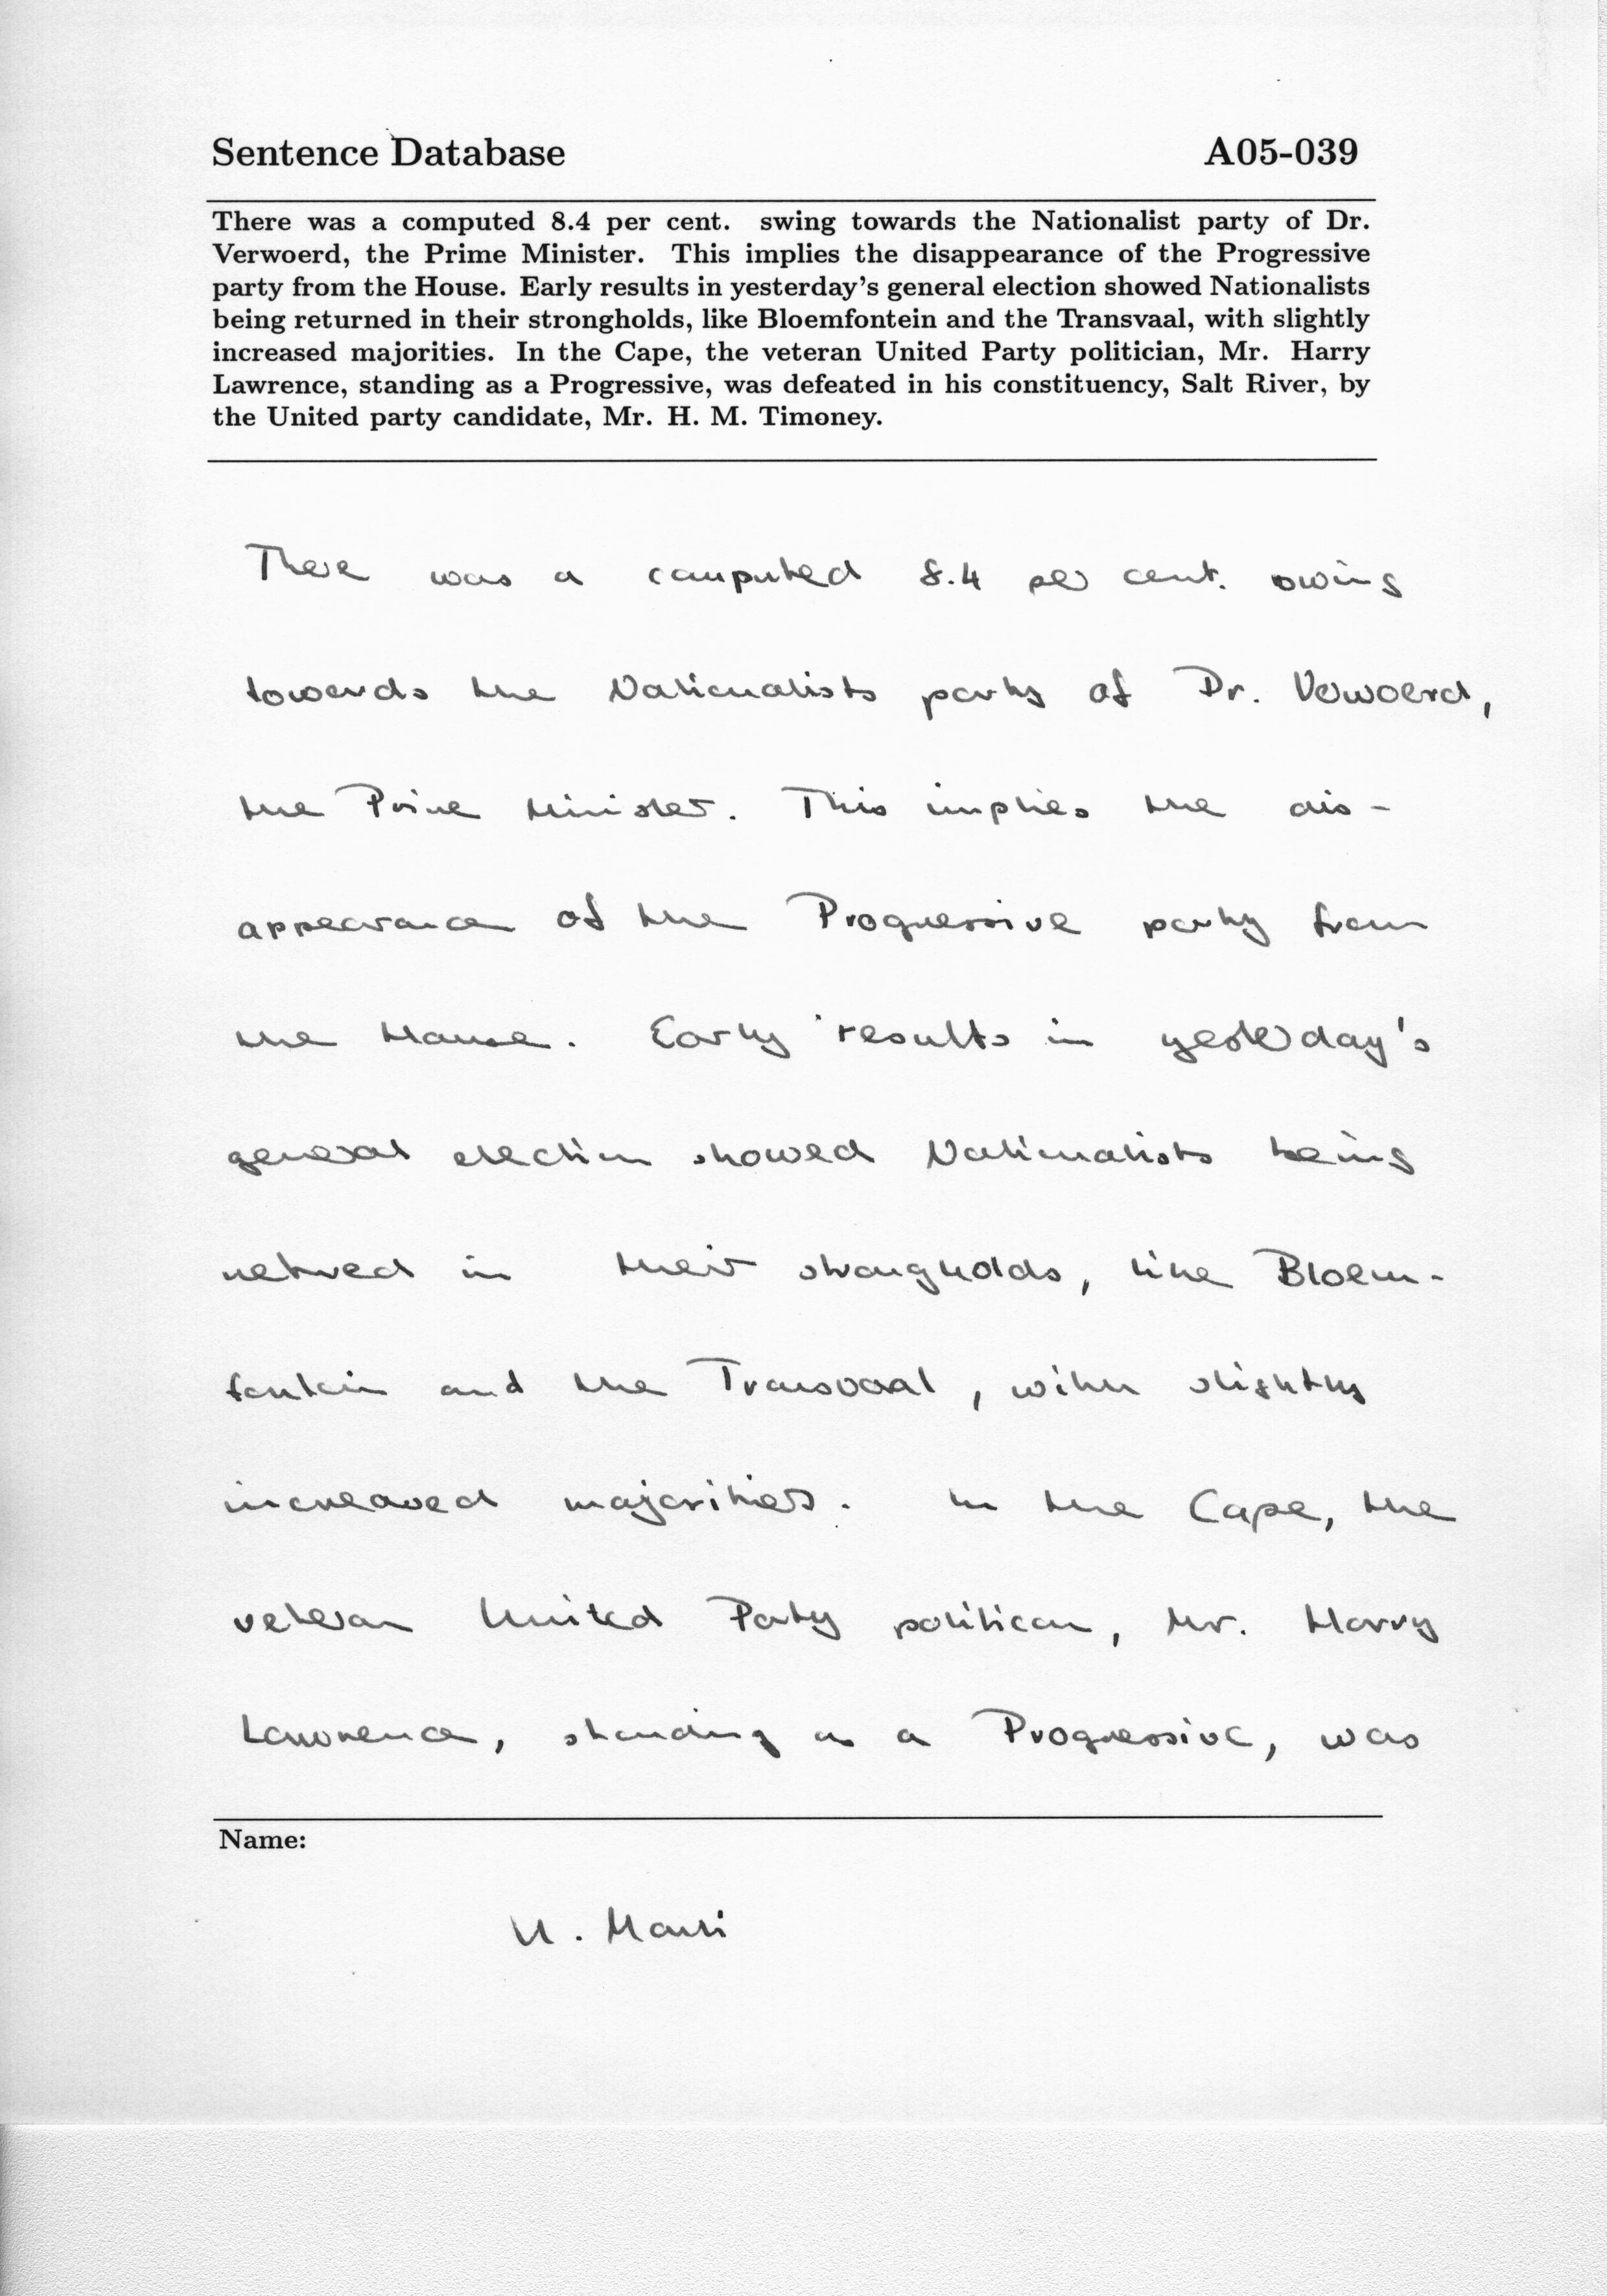 Sentence Database A05-039
There was a computed 8.4 per cent. swing towards the Nationalist party of Dr.
Verwoerd, the Prime Minister. This implies the disappearance of the Progressive
party from the House. Early results in yesterday's general election showed Nationalists
being returned in their strongholds, like Bloemfontein and the Transvaal, with slightly
increased majorities. In the Cape, the veteran United Party politician, Mr. Harry
Lawrence, standing as a Progressive, was defeated in his constituency, Salt River, by
the United party candidate, Mr. H. M. Timoney.
There was a computed 8.4 per cent. swing
towards the Nationalists party of Dr. Verwoerd,
the Prime Minister. This implies the dis-
appearance of the Progressive party from
the House. Early results in yesterday's
general election showed Nationalists being
retured in their strongholds, like Bloem-
fontein and the Transvaal, with slightly
increased majorities. In the Cape, the
veteran United Party politican, Mr. Harry
Lawrence, standing as a Progressive, was
Name: